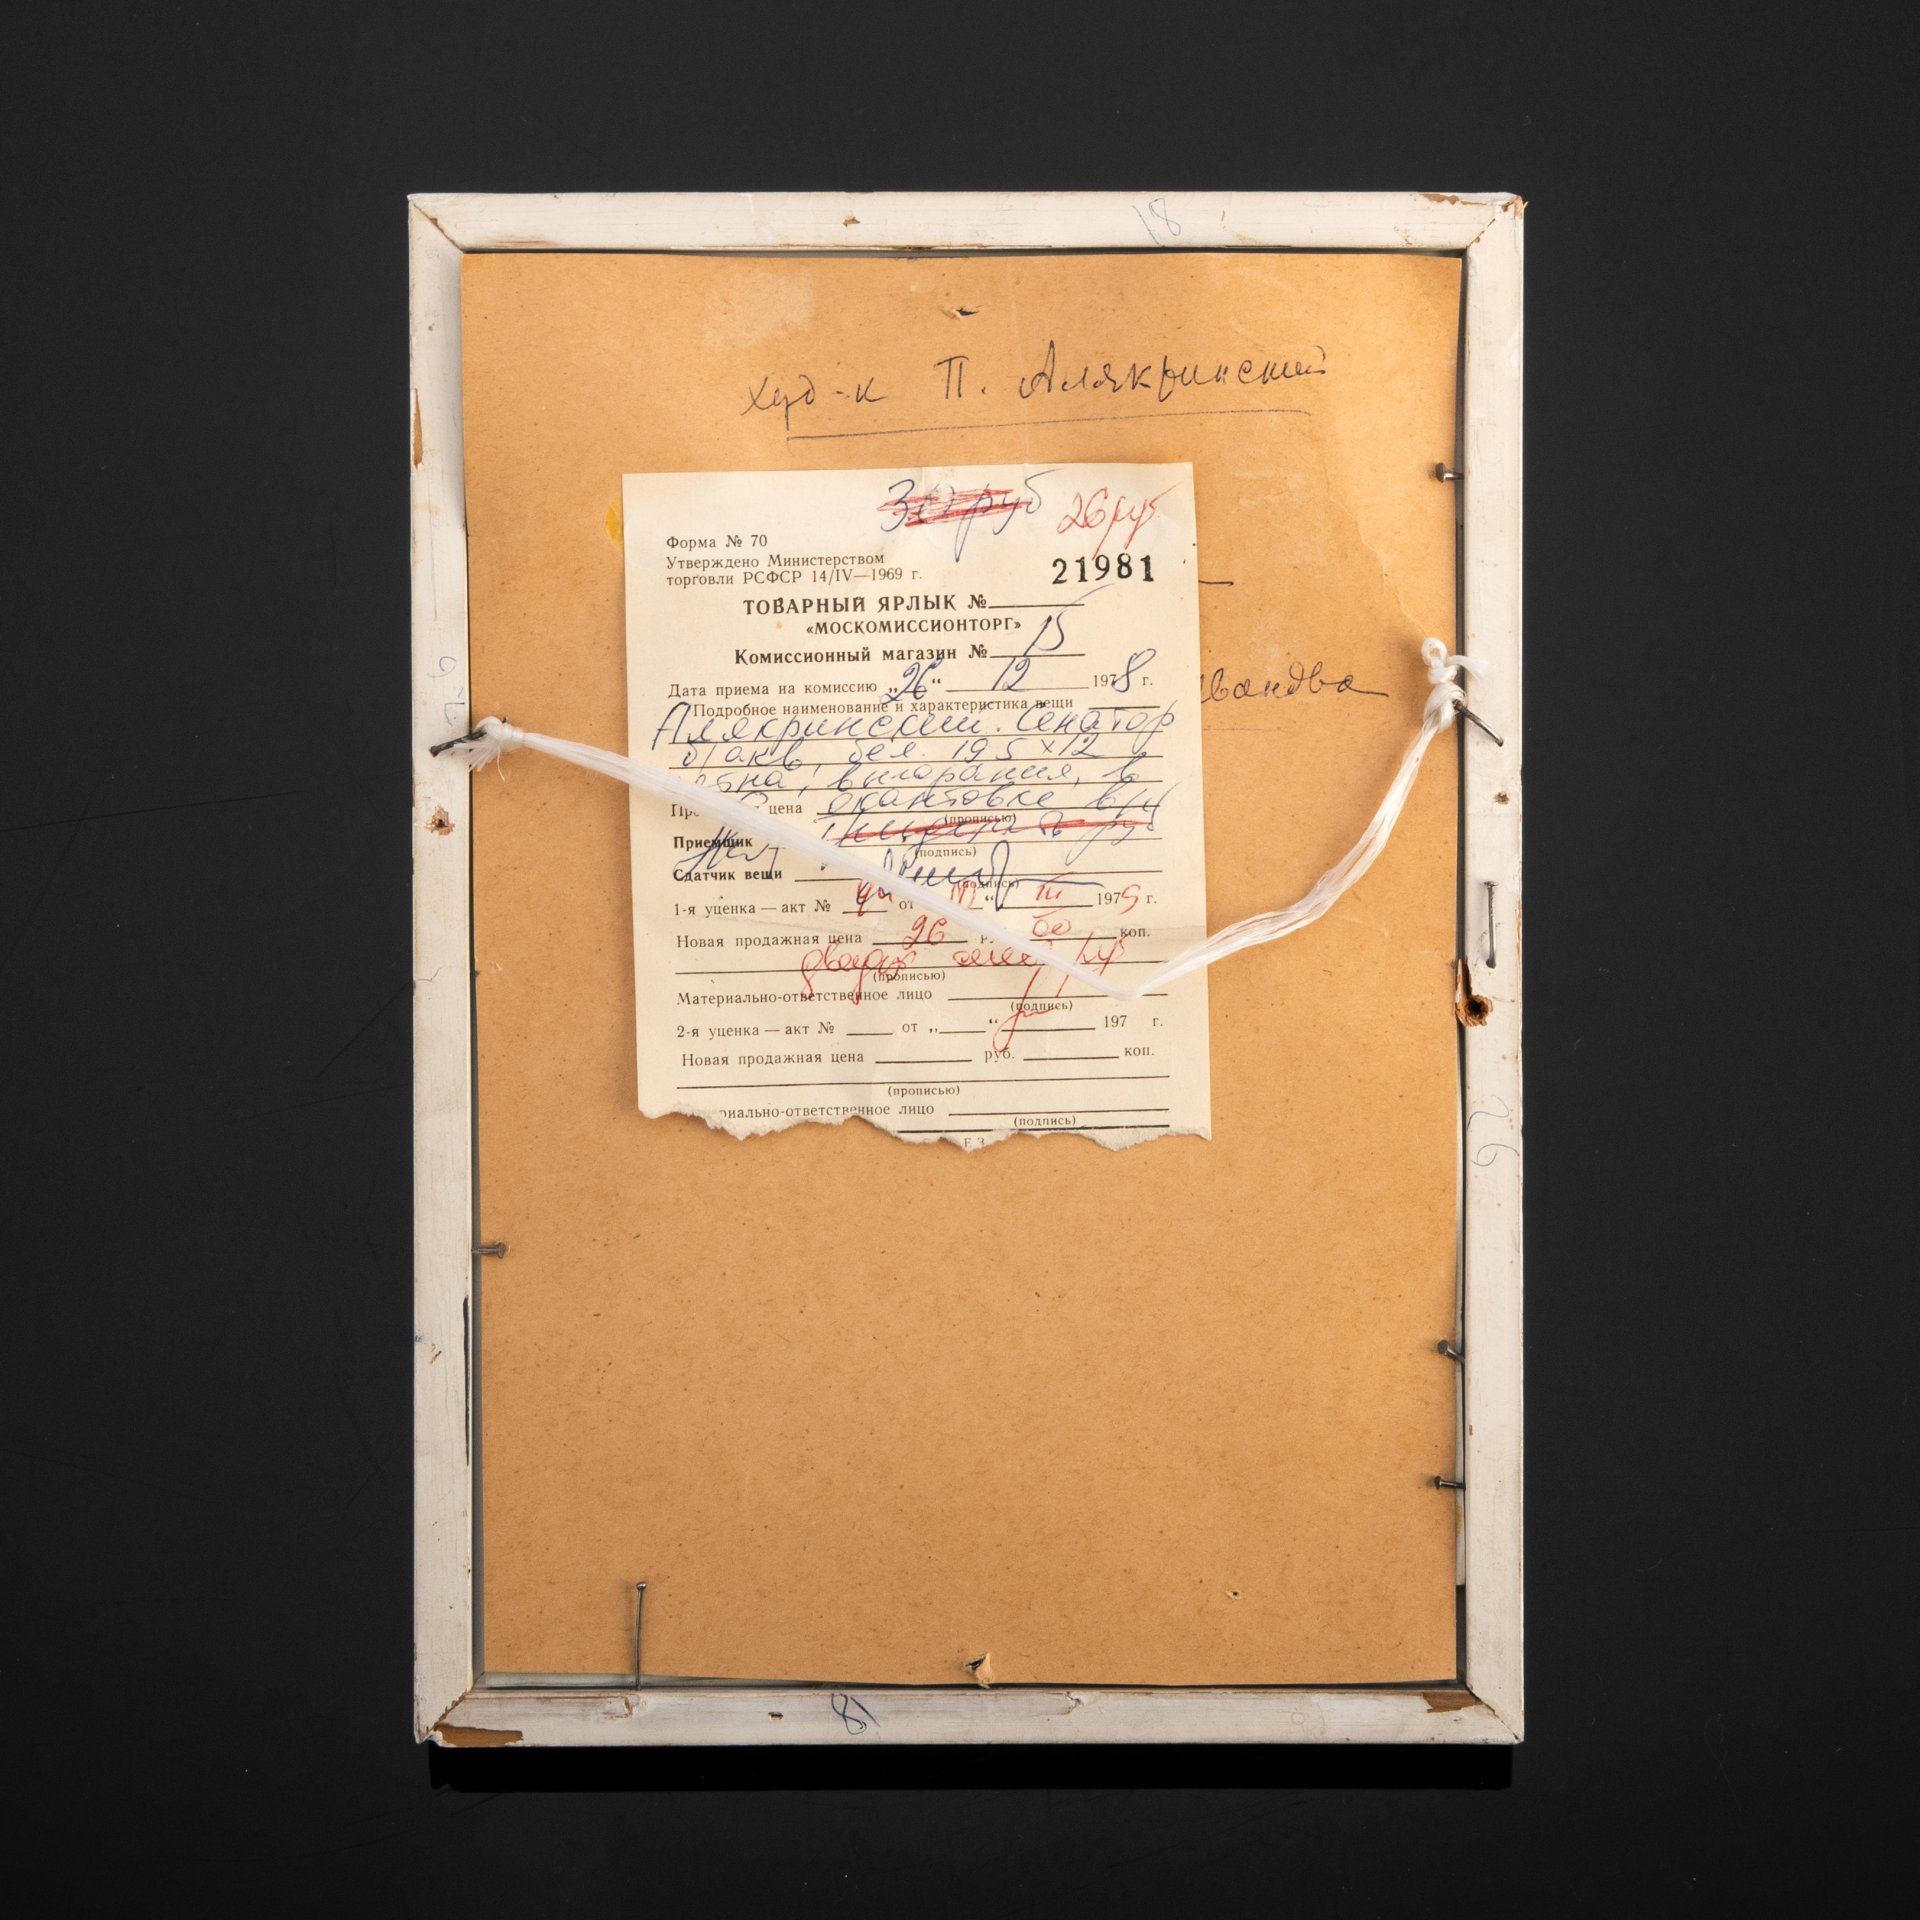 18
худ-к П. Алякринский
30 руб 26 руб
Форма № 70
Утверждено Министерством
торговли РСФСР 14/IV—1969 г.
21981
ТОВАРНЫЙ ЯРЛЫК №
«МОСКОМИССИОНТОРГ»
Комиссионный магазин № 15
Дата приема на комиссию „26“ 12 1978 г.
Подробное наименование и характеристика вещи
Алякринский. Сенатор
б/акв, бел. 19 5 х 12
выгорания, в
цена окантовке
(прописью)
тридцать руб
Приемщик
(подпись)
Сдатчик вещи
(подпись)
1-я уценка — акт № от “ III 1979 г.
Новая продажная цена 26 60 коп.
двадцать шесть руб
(прописью)
Материально-ответственное лицо
(подпись)
2-я уценка — акт № от „ “ 197 г.
Новая продажная цена руб. коп.
(прописью)
риально-ответственное лицо
(подпись)
26
26
18